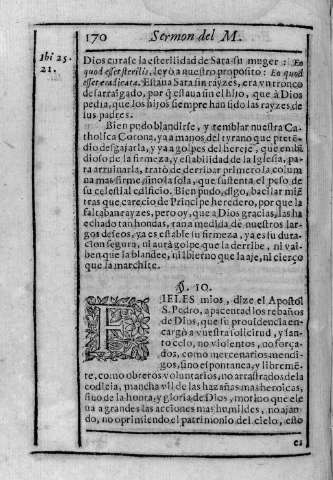 170 Sermon del M.
Ibi 25.
21.
Dios curase la esterilidad de Sara su muger: Eo
quod esset sterilis, leyò a nuestro proposito: Eo quod
esset eradicata. Estaua Sara sin rayzes, era vn tronco
desarraygado, por q̃ estaua sin el hijo, que à Dios
pedia, que los hijos siempre han sido las rayzes, de
sus padres.
Bien pudo blandirse, y temblar nuestra Ca-
tholica Corona, ya a manos, del tyrano que preté-
dio desgajarla, y ya a golpes del herege, que embi
dioso de la firmeza, y estabilidad de la Iglesia, pa-
ra arruinarla, tratò de derribar primero la colum
na mas firme, sino la sola, que sustenta el peso de
su celestial edificio. Bien pudo, digo, bacilar mié
tras que carecio de Principe heredero, por que la
faltaban rayzes, pero oy, que à Dios gracias, las ha
echado tan hondas, raña medida de nuestros lar-
gos deseos, ya es estable su firmeza, ya es su dura-
cion segura, ni aurà golpe que la derribe, ni vai-
ben que la blandee, ni ibierno que la aje, ni cierço
que la marchite.
§. 10.
FIELES mios, dize el Apostol
S. Pedro, apacentad los rebaños
de Dios, que su prouidencia en-
cargò a vuestra solicitud, y san-
to celo, no violentos, no força-
dos, como mercenarios mendi-
gos, sino espontanea, y libremé-
te, como obreros voluntarios, no arrastrados de la
codicia, mancha vil de las hazañas mas heroicas,
sino de la honra, y gloria de Dios, motiuo que ele
ua a grandes las acciones mas humildes, no ajan-
do, no oprimiendo el patrimonio del cielo, esto
es